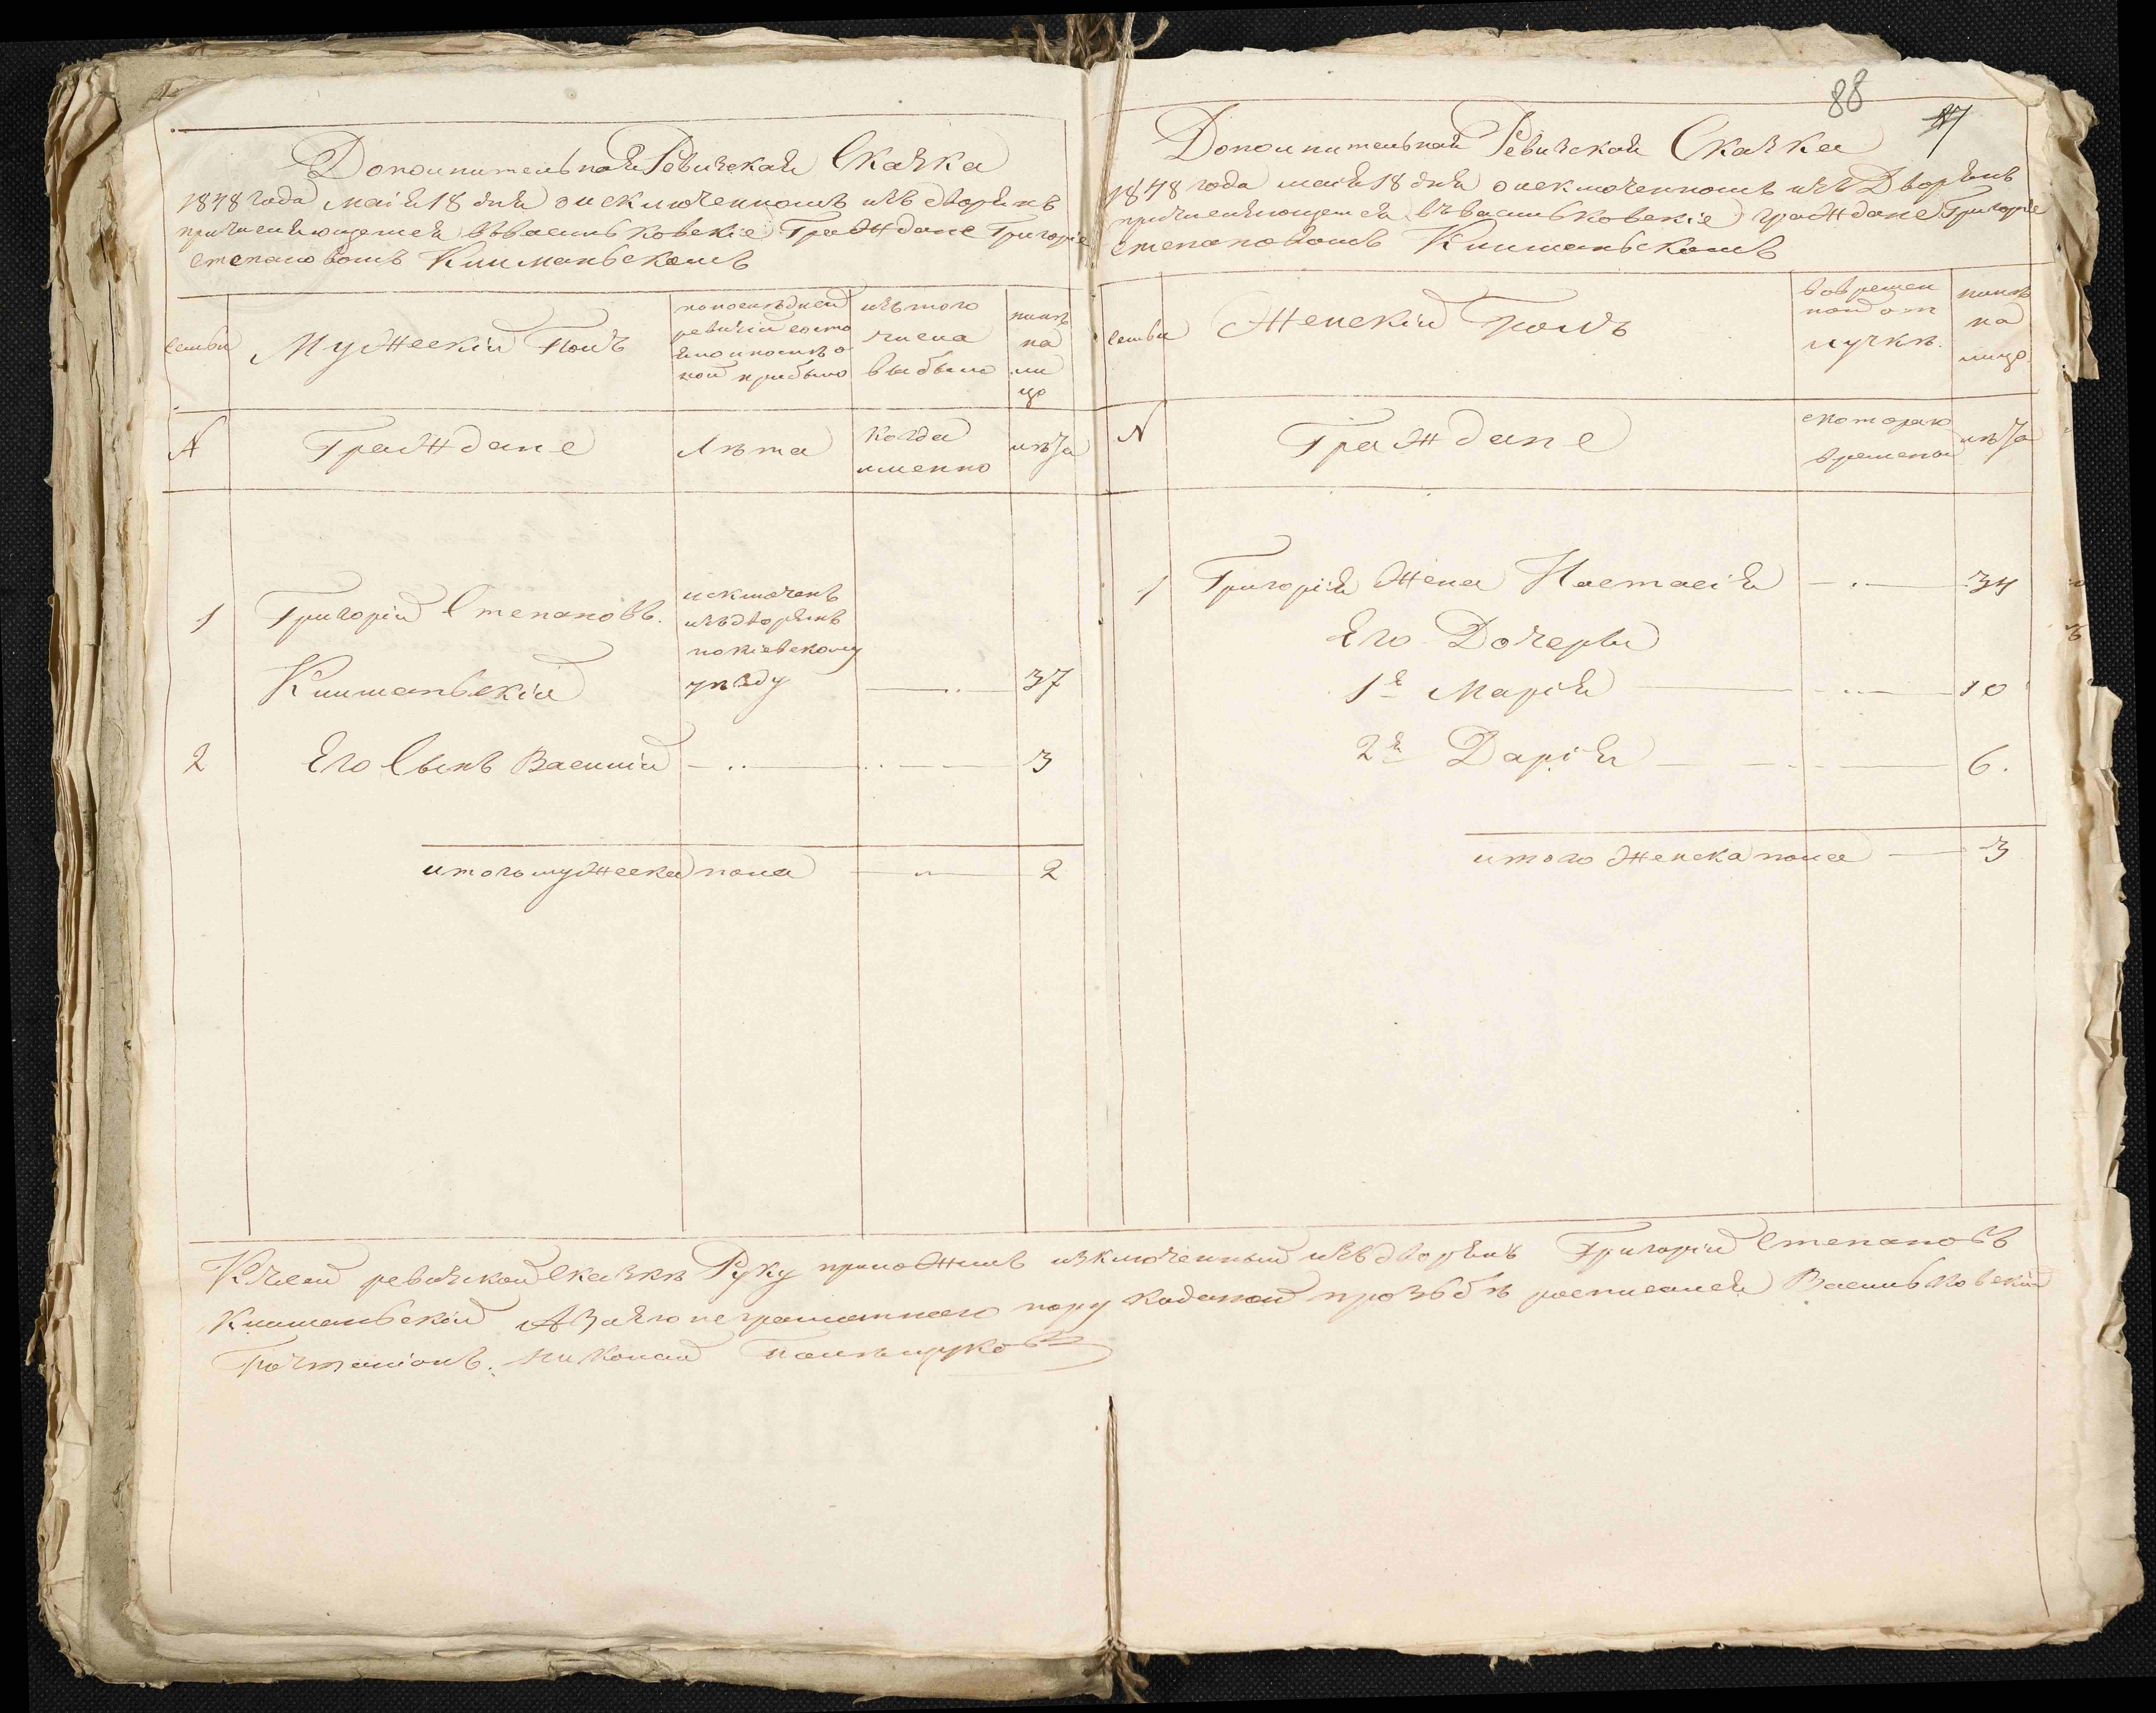 Дополнительная Ревизская Сказка
1848 года маія 18 дня о исключенномъ изъ дворянъ
причисляющемся въ васильковскіе Граждане Григоріе
степановомъ Климанскомъ
семьи
Мужескій Полъ
попоследней
ревизіи состо
яло и после о
ной прибыло
изъ того
числа
выбыло
ныне
на
ли
цо
№
Граждане
Лѣта
когда
именно
лѣта
1
Григорій Степановъ.
исключенъ
изъ дворянъ
по кіевскому
Климанскій
уѣзду
37
2
Его Сынъ Василій
3
итого мужеска пола
2
88
Дополнительная Ревизская Сказка
1848 года маія 18 дня о исключенномъ изъ Дворянъ
причисляющемся въ васильковскіе граждане Григоріе
степановомъ Климанскомъ
семьи
Женскій Полъ
во времен
ной от
лучкѣ.
нынѣ
на
лицо
№
Граждане
с котораго
времени
лѣта
1
Григорія Жена Настасія
34
Его Дочери
1я Марія
10
2я Дарія
6.
итого женска пола
3
К сей ревизской сказкѣ Руку приложилъ изключенный изъ дворянъ Григорій Степановъ
Климанскій А за его неграмотнаго по рукоданой прозьбѣ росписался Васильковскій
Почталіонъ. Николай